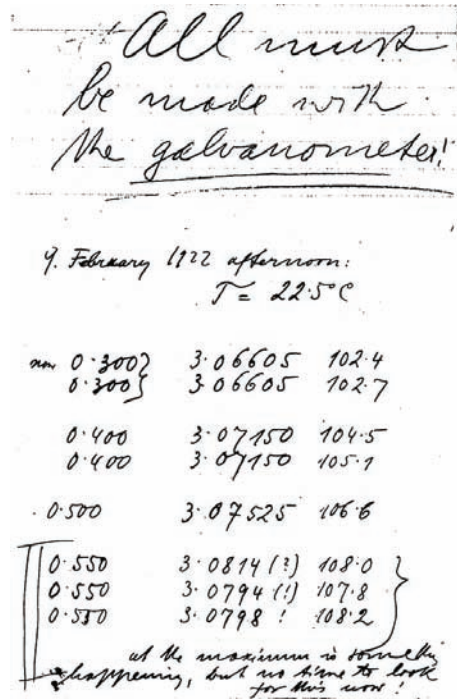 All must
be made with
the galvanometer!
9. February 1922 afternoon:
T = 22·5°C
0·300} 3·06605 102·4
0·300} 3·06605 102·7
0·400 3·07150 104·5
0·400 3·07150 105·1
0·500 3·07525 106·6
0·550 3·0814 (?) 108·0
0·550 3·0794 (!) 107·8
0·550 3·0798 ! 108·2
at the maximum is something
happening, but no time to look
for this now